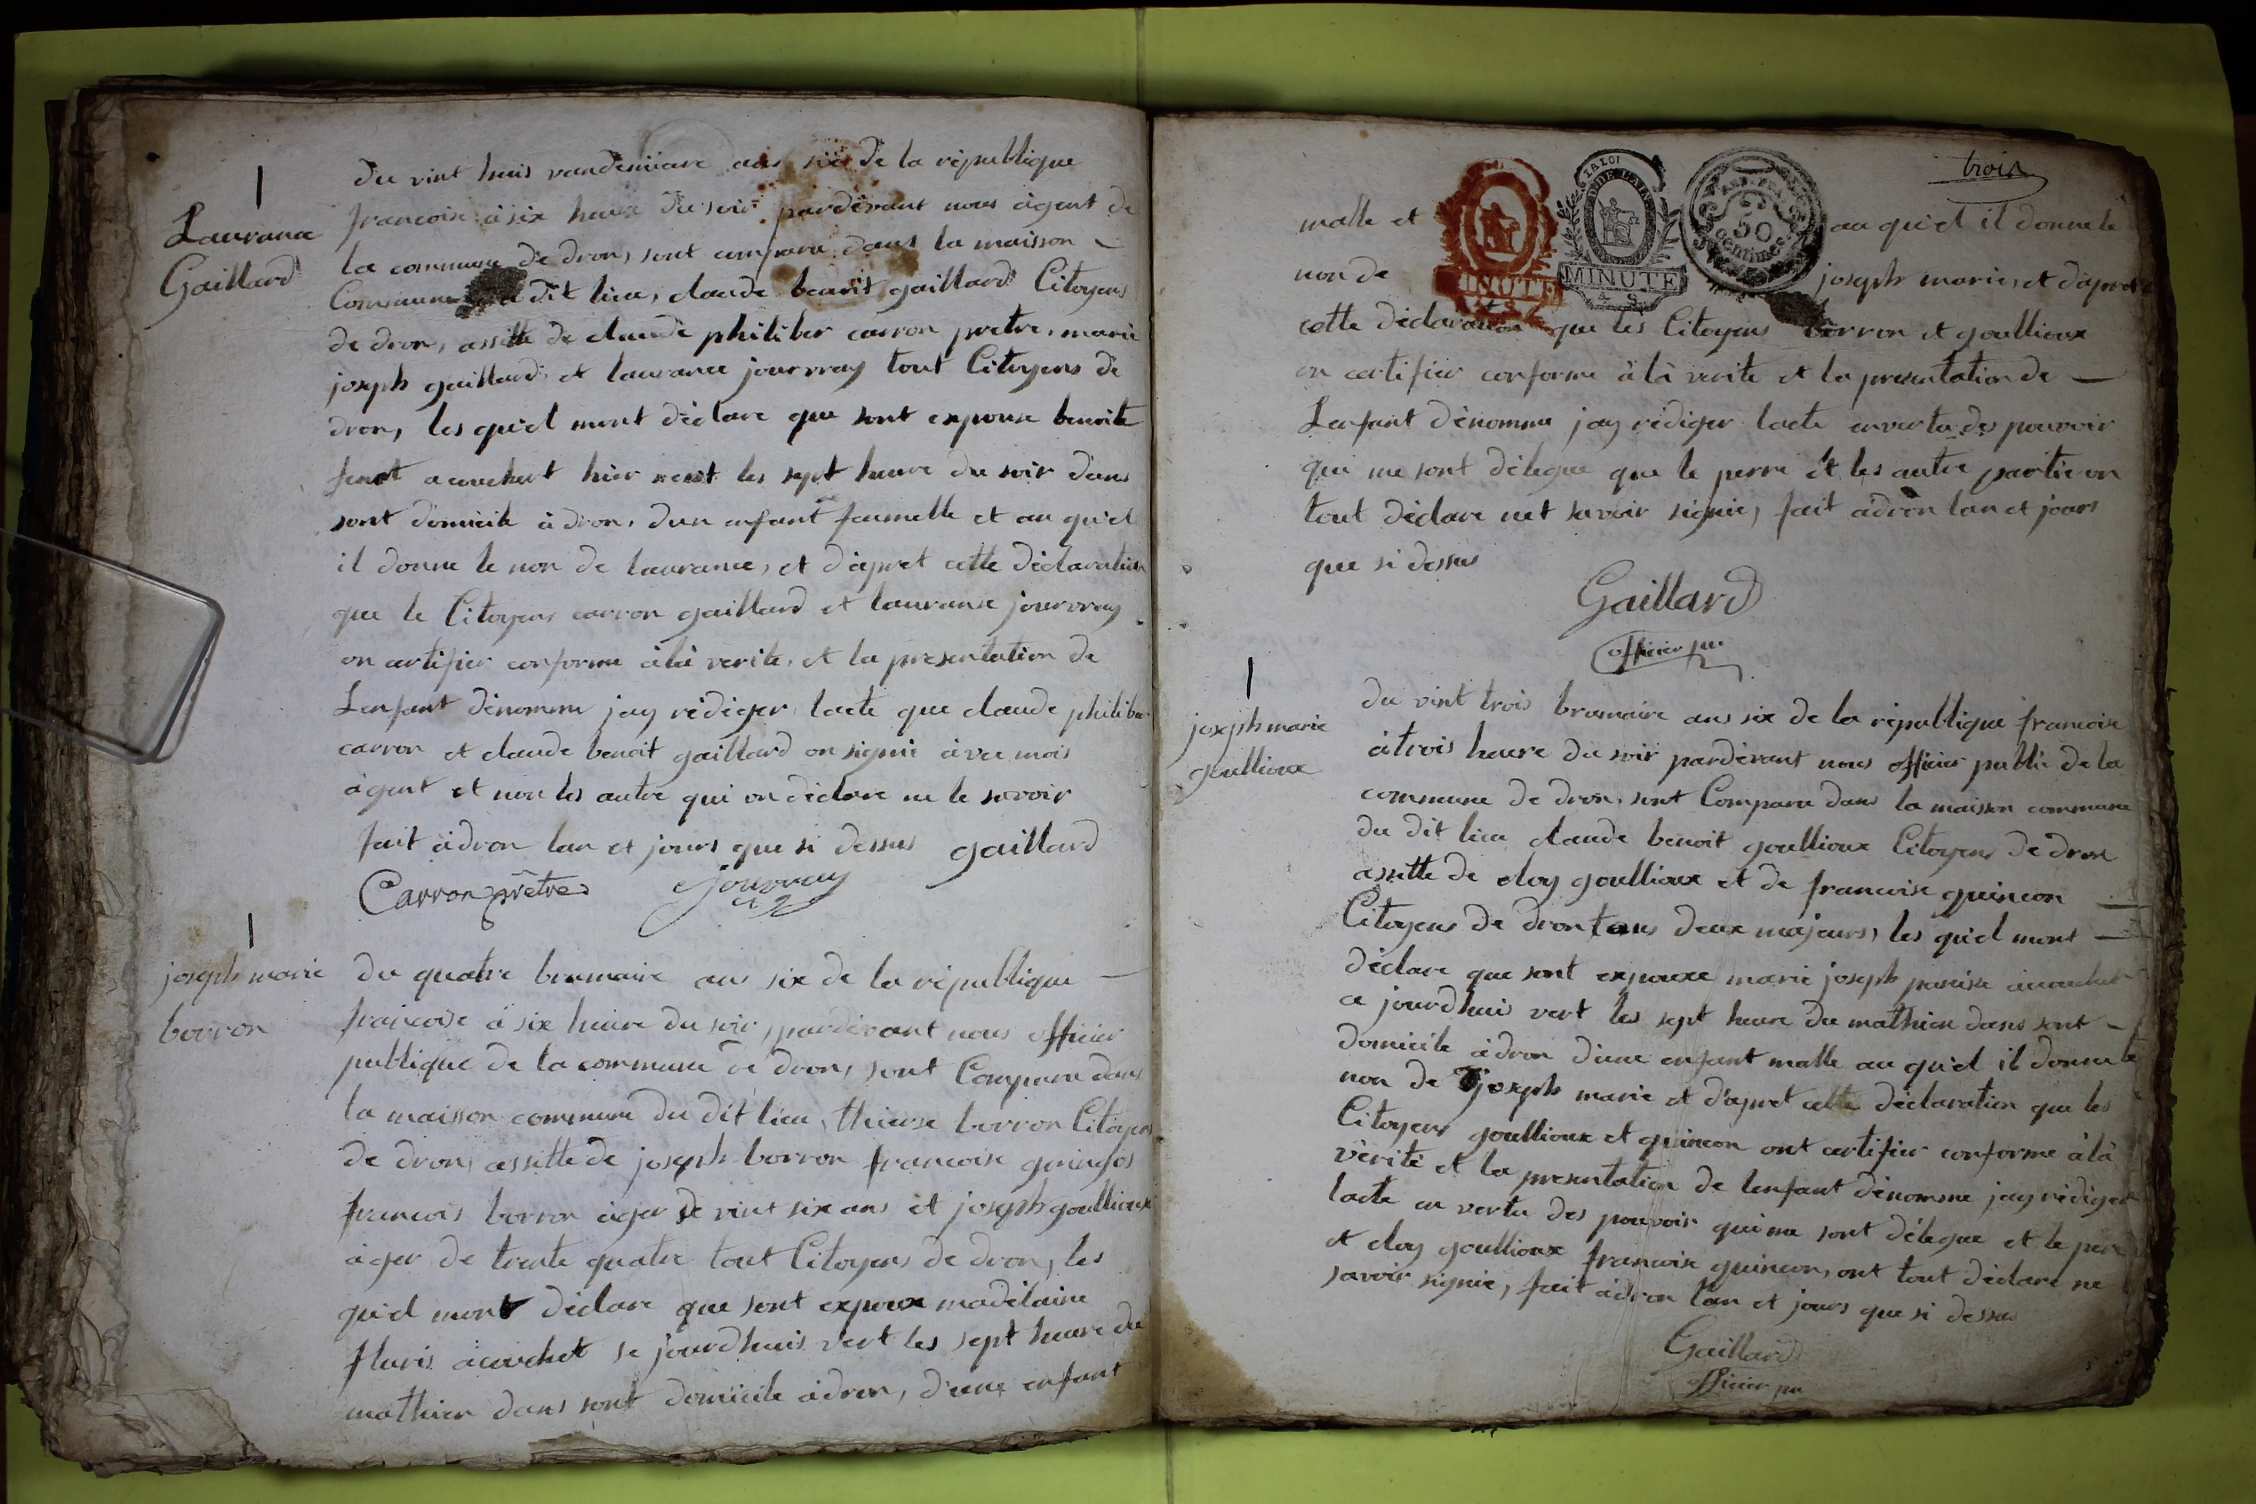 Laurance
Gaillard
du vint huis vandemiiare ans six de la république
francoise à six heure du soir pardevant nous àgent de
la commune de dron, sont compara dans la maisson
Commune dit lieu, claude benoit gaillard Citoyens
de dron, assitte de claude philiber carron pretre, marie
joseph gaillard et laurance jourvray tout Citoyens de
dron, les qu'el mont déclare que sont expouse benoite
acouchert hier vert les sept heure du soir dans
sont domicile à dron, dun enfant feumelle et au qu'el
il donne le non de laurance, et d'apret cette déclaration
que le Citoyens carron gaillard et lauranse jourvray
on certifier conforme à là verite, et la presentation de
Lenfant dénomme jay rédiger lacte que claude philiber
carron et claude benoit gaillard on signié à vec mois
àgent et non les autre qui on déclare ne le savoir
fait à dron lan et jours que si dessus gaillard
Carron prêtre Jourvray
joseph marie
borron
du quatre brumaire ans six de la république
francoise à six heure du soir, pardevant nous officier
publique de la commune de dron, sont Compara dans
la maisson commune du dit lieu, borron Citoyens
de dron, assitte de joseph borron francoise
francois borron àger de vint six ans et joseph goullioux
àger de trente quatre tout Citoyens de dron, les
qu'el mont déclare que sont expouse madelaine
fluris acouchet se jourdhuis vert les sept heure du
mathien dans sont domicile à dron, d'une enfant
trois
malle et au qu'el il donne le
non de joseph marie, et d'apret
cette déclaration que les Citoyens borron et goullioux
on certifier conforme à là verite et la presentation de
Lenfant dénomme jay rédiger lacte en vertu des pouvoir
qui me sont délegue que le perre et les autre partie on
tout déclare net savoir signie, fait à dron lan et jours
que si dessus
Gaillard
officier pu
LA LOI
MINUTE
MINUTE
50
Centimes
joseph marie
goullioux
du vint trois brumaire ans six de la république francoise
à trois heure du soir pardevant nous officier public de la
commune de dron, sont Compara dans la maisson commune
du dit lieu claude benoit goullioux Citoyens de dron
assitte de eloy goullioux et de francoise quincon
Citoyens de dron tous deux majeurs, les qu'el mont
déclare que sont expouxe marie joseph acouchet
ce jourdhuis vert les sept heure du mathien dans sont
domicile à dron d'une enfant malle au qu'el il donne le
non de joseph marie et d'apret cette déclaration que les
Citoyens goullioux et quincon ont certifier conforme à là
vérité et la presentation de lenfant dénomme jay rédiger
lacte en vertu des pouvoir qui me sont délegue et le pere
et eloy goullioux francoise quincon, ont tout déclare ne
savoir signie, fait à dron lan et jours que si dessus
Gaillard
officier pu